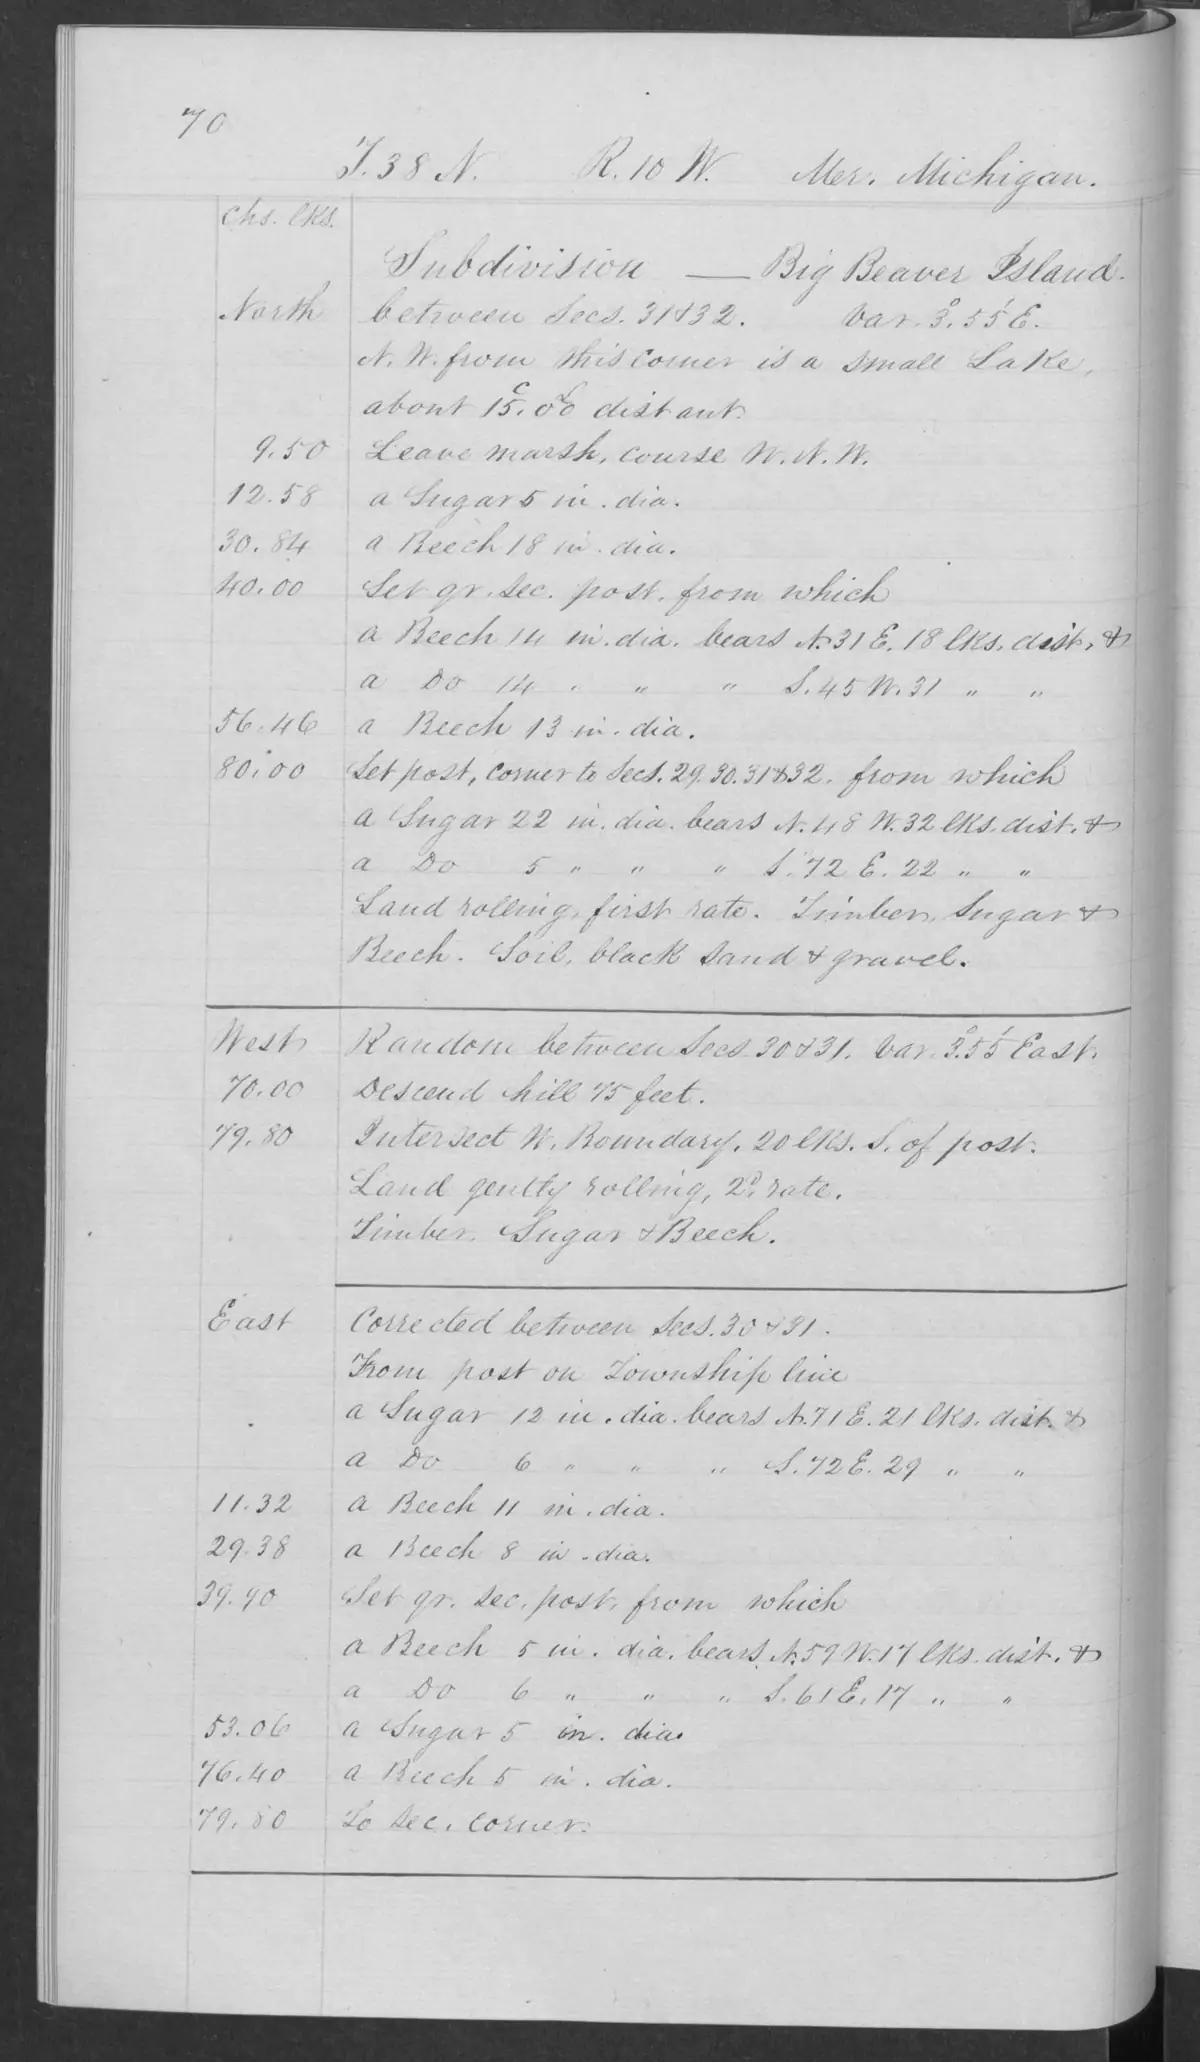 70
T. 38 N. R. 10 W. Mer. Michigan.
Chs. lks.
Subdivision — Big Beaver Island.
North between Secs. 31 & 32. Var. 3°. 55' E.
N. W. from this corner is a small Lake,
about 15.ᶜ 00ᴸ distant.
9.50 Leave marsh, course W. N. W.
12.58 a Sugar 5 in. dia.
30.84 a Beech 18 in. dia.
40.00 Set qr. sec. post, from which
a Beech 14 in. dia. bears N. 31 E. 18 lks. dist. &
a Do 14 " " " S. 45 W. 31 " "
56.46 a Beech 13 in. dia.
80.00 Set post, corner to Secs. 29. 30. 31 & 32. from which
a Sugar 22 in. dia. bears N. 48 W. 32 lks. dist. &
a Do 5 " " " S. 72 E. 22 " "
Land rolling, first rate. Timber, Sugar &
Beech. Soil, black sand & gravel.
West Random between Secs 30 & 31. Var. 3°. 55' East.
70.00 Descend hill 75 feet.
79.80 Intersect W. Boundary, 20 lks. S. of post.
Land gently rolling, 2d. rate.
Timber. Sugar & Beech.
East Corrected between Secs. 30 & 31.
From post on Township line
a Sugar 12 in. dia. bears N. 71 E. 21 lks. dist. &
a Do 6 " " " S. 72 E. 29 " "
11.32 a Beech 11 in. dia.
29.38 a Beech 8 in. dia.
39.90 Set qr. sec. post, from which
a Beech 5 in. dia. bears N. 59 W. 17 lks. dist. &
a Do 6 " " " S. 61 E. 17 " "
53.06 a Sugar 5 in. dia.
76.40 a Beech 5 in. dia.
79.80 To sec. corner.